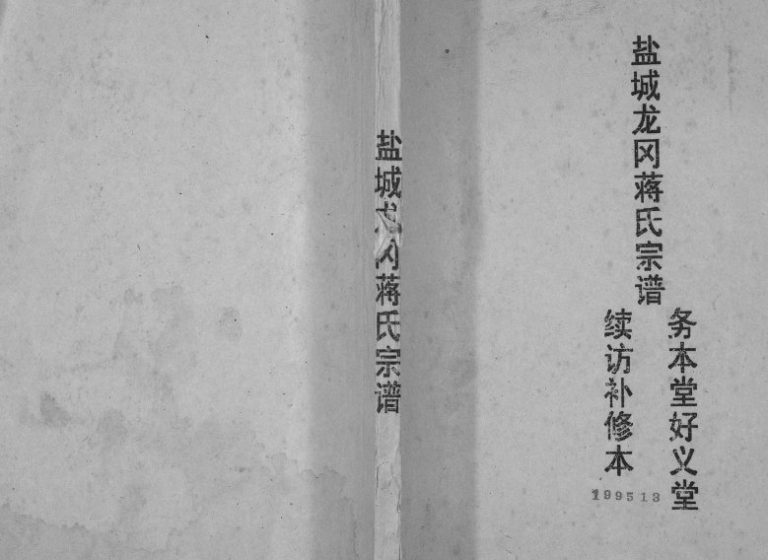 盐城龙冈蒋氏宗谱
务本堂好义堂
续访补修本
199513
盐城龙冈蒋氏宗谱